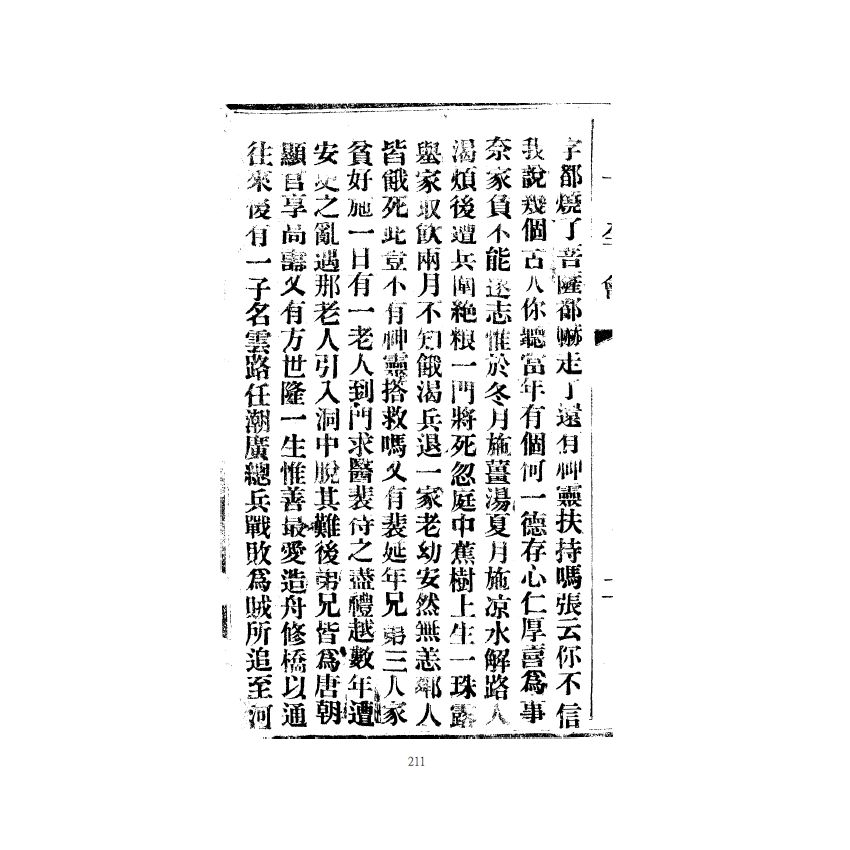 字都燒了菩薩都嚇走了還有神靈扶持嗎張云你不信
我說幾個古人你聽當年有個何一德存心仁厚喜為事
奈家貧不能遂志惟於冬月施薑湯夏月施凉水解路人
渴煩後遭兵圍絶粮一門將死忽庭中蕉樹上生一珠露
舉家取飲兩月不知餓渴兵退一家老幼安然無恙鄰人
皆餓死此豈不有神靈搭救嗎又有裴延年兄弟三人家
貧好施一日有一老人到門求醫裴待之盡禮越數年遭
安史之亂遇那老人引入洞中脫其難後弟兄皆為唐朝
顯官享高壽又有方世隆一生惟善最愛造舟修橋以通
往來後有一子名雲路任潮廣總兵戰敗為賊所追至河
211